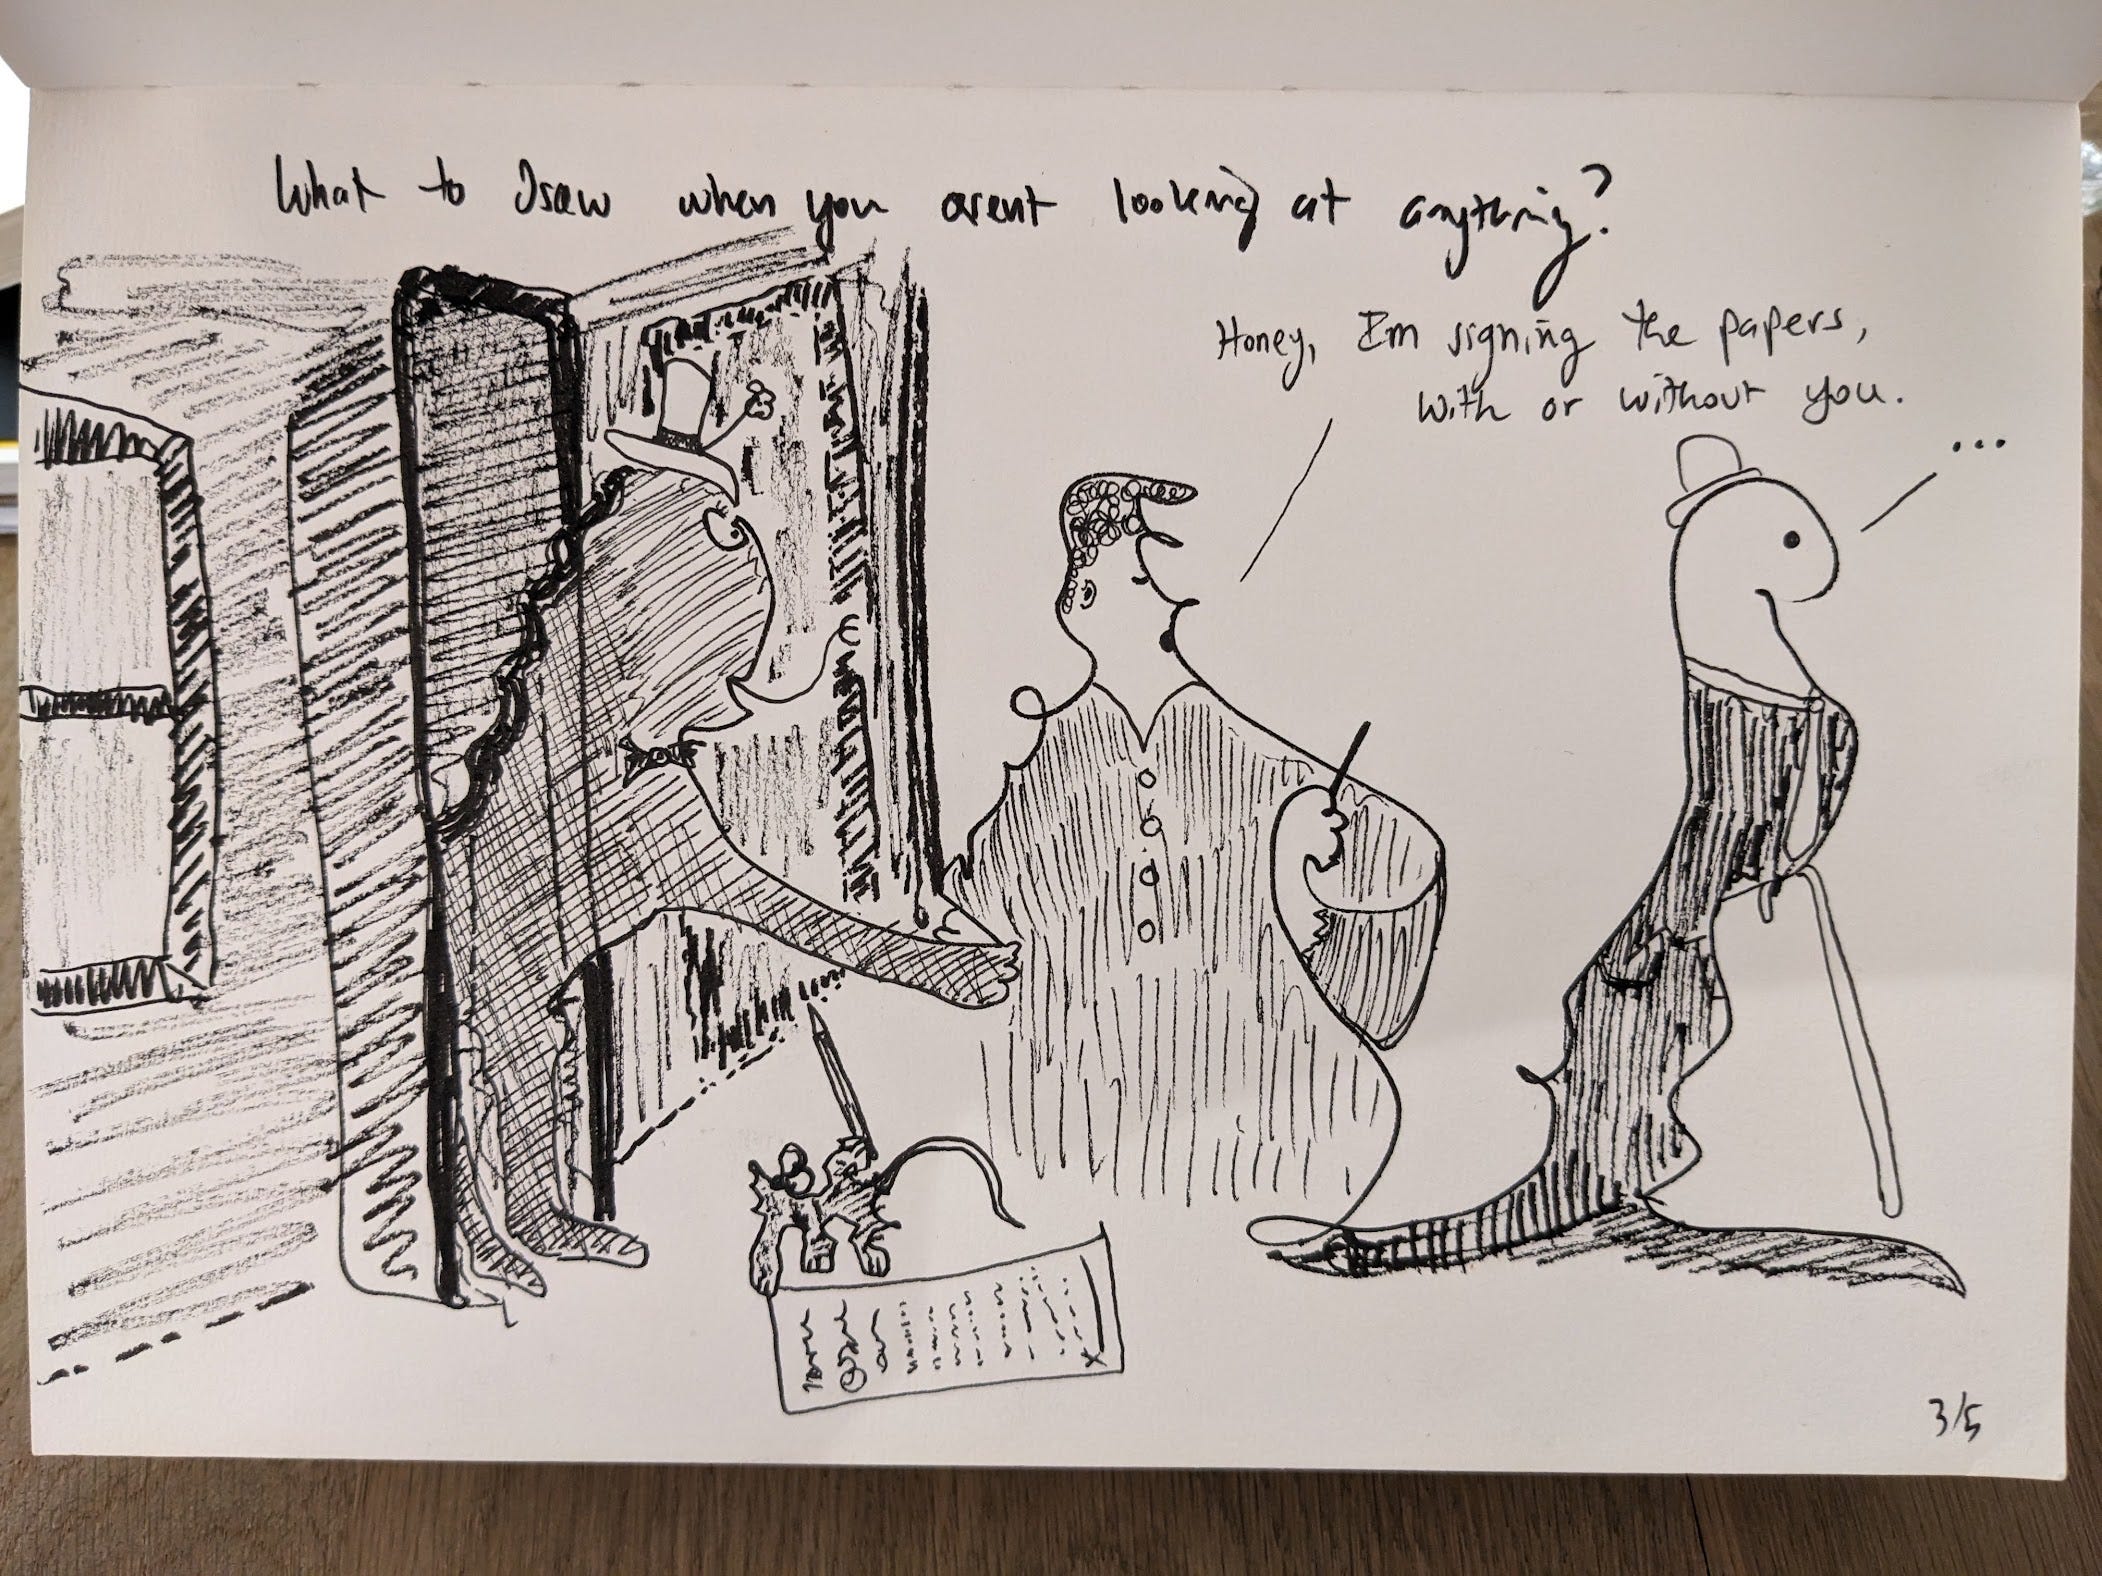 What to Draw when you arent looking at anything?
Honey, I'm signing the papers,
with or without you.
...
X
3/5